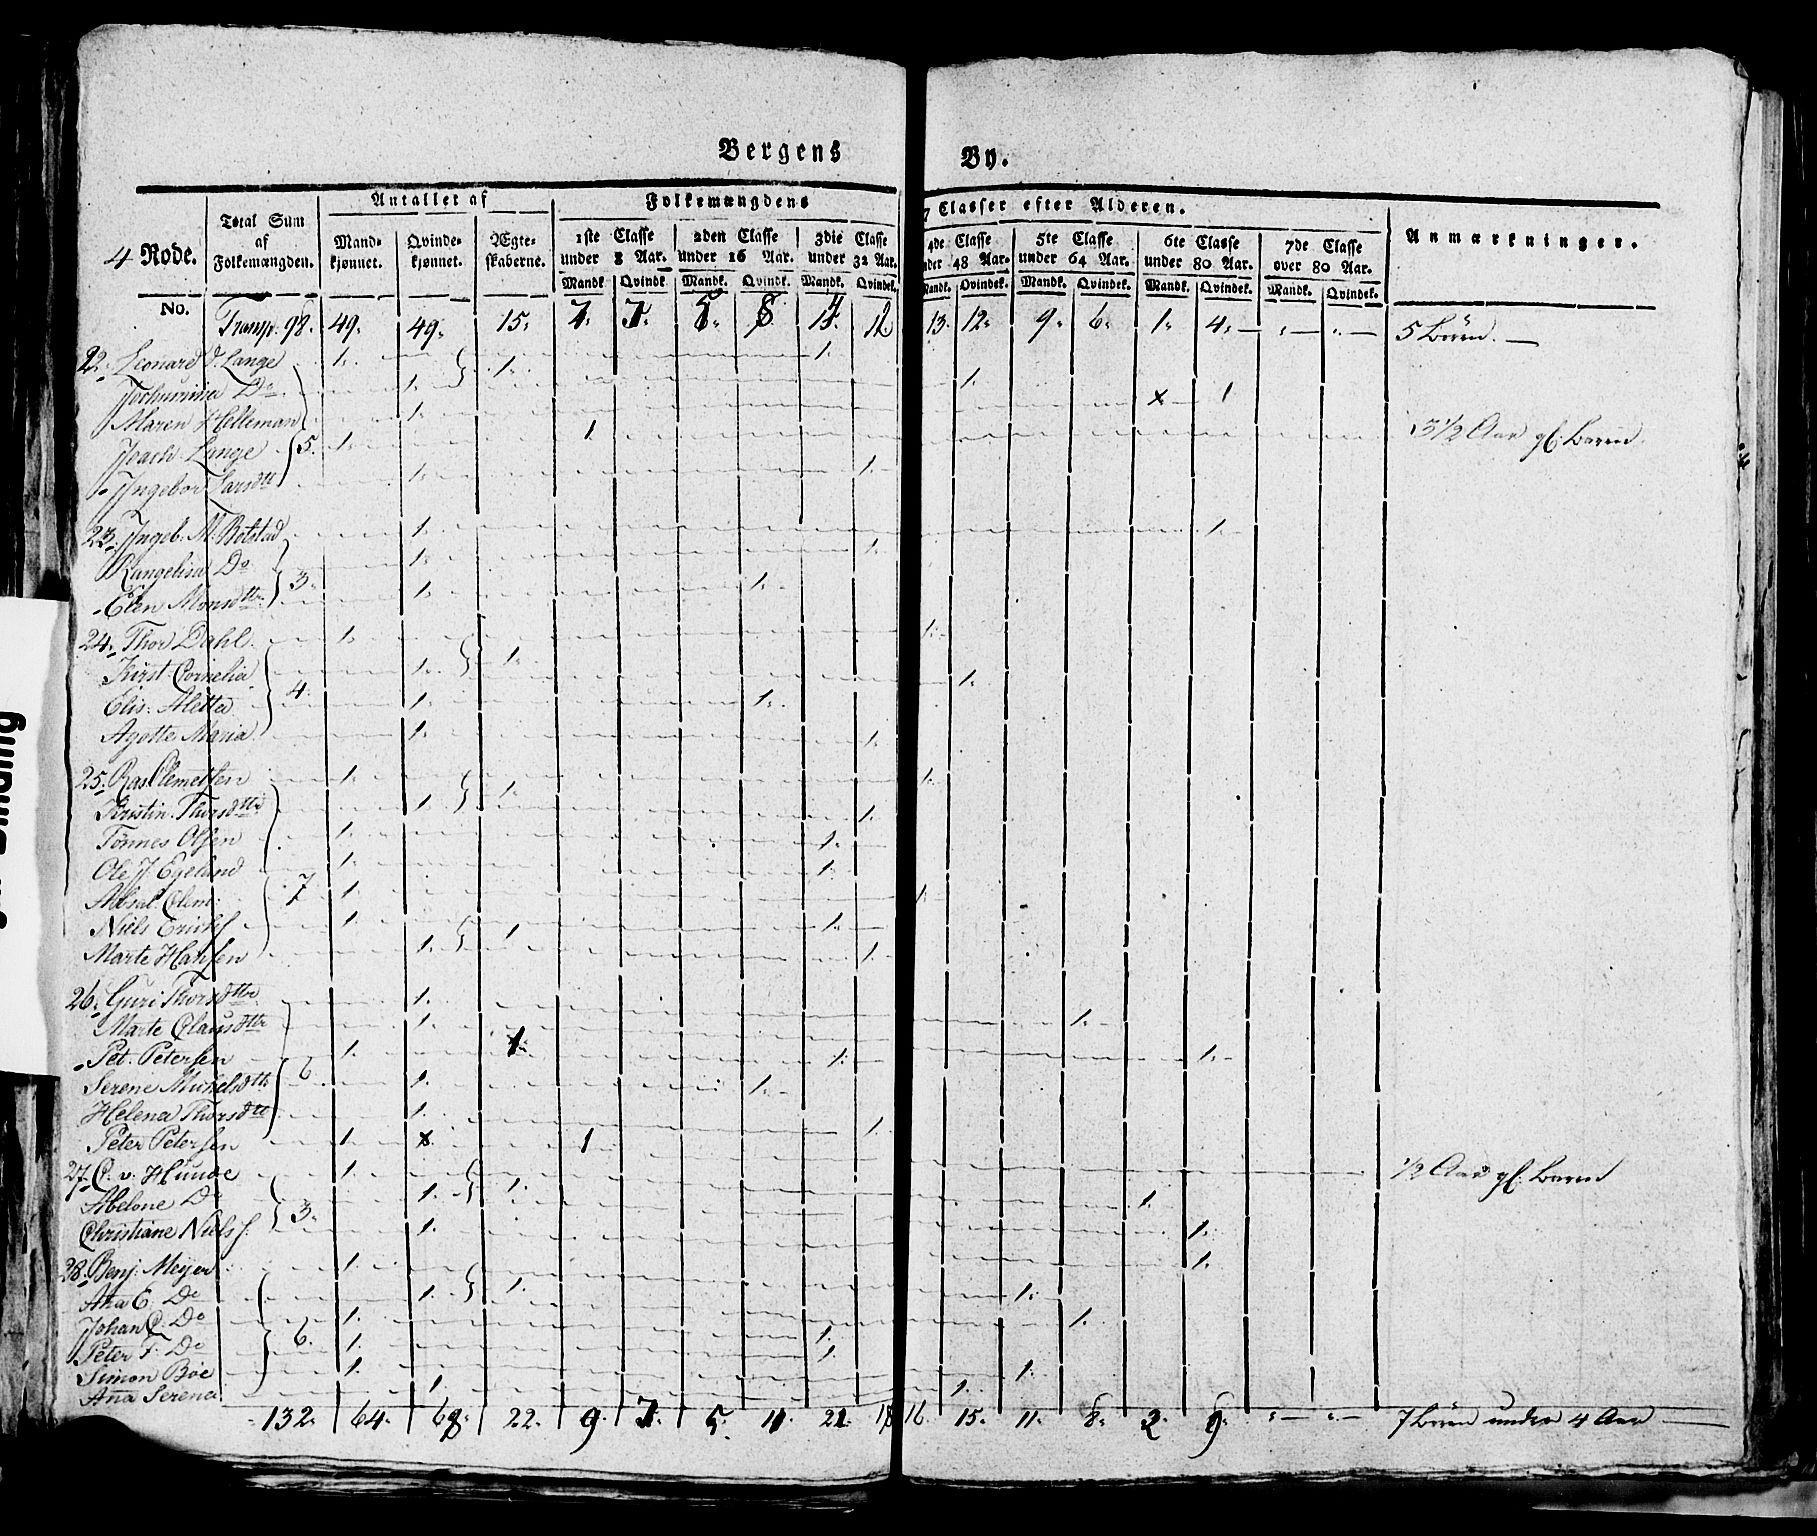 Bergens By.
Antallet af Folkemængdens 7 Classer efter Alderen.
4 Rode. Total Sum af Folkemængden. Mandkjønnet. Qvindekjønnet. Ægteskaberne. 1ste Classe under 8 Aar. 2den Classe under 16 Aar. 3die Classe under 32 Aar. 4de Classe under 48 Aar. 5te Classe under 64 Aar. 6te Classe under 80 Aar. 7de Classe over 80 Aar. Anmærkninger.
No. Mandk. Qvindek. Mandk. Qvindek. Mandk. Qvindek. Mandk. Qvindek. Mandk. Qvindek. Mandk. Qvindek. Mandk. Qvindek.
Transp. 98. 49. 49. 15. 7. 7. 5 8 13. 12. 9. 6. 1. 4. 5 Börn.
22. Leonard d. Lange 1. 1. 1.
Jochumina Do 1. 1.
Maren Helleman 1. x 1
Joach. Lange 5. 1. 1 3 1/2 Aar gl. Baren.
Ingebor Larsdtr 1. 1.
23. Ingeb. M. Botstad 1. 1.
Rangelisa Do 1. 1.
Elen Monsdttr 3. 1. 1.
24. Thor Dahl. 1. 1. 1.
Kirst. Cornelia 1. 1.
Elis. Aletta 4. 1. 1.
Agotte Maria 1. 1.
25. Ras Clemetsen 1. 1. 1.
Kristin. Thorsdttr 1. 1.
Tönnes Olsen 1. 1.
Ole J. Egeland 1. 1.
Absal. Clem. 7 1. 1.
Niels Erichs. 1. 1. 1.
Marte Hansen 1. 1.
26. Guri Thorsdttr 1. 1.
Marte Clausdttr 1. 1.
Pet. Petersen 1. 1. 1.
Serene Mickelsdttr 6 1. 1.
Helena Thorsdtt 1. 1.
Peter Petersen 1. x 1 1/2 Aar gl. Baren
27. C. v. Hunde 1. 1. 1.
Abelone Do 3. 1. 1.
Christiane Niels. 1. 1.
28. Benj. Meyer 1. 1. 1.
Ana E. Do 1. 1.
Johan C. Do 1. 1.
Peter F. Do 6. 1. 1.
Simon Böe 1. 1.
Ana Serena. 1. 1.
132. 64. 68. 22. 9. 7. 5. 11. 21. 18 16. 15. 11. 8. 2. 9. 7 Börn under 4 Aar